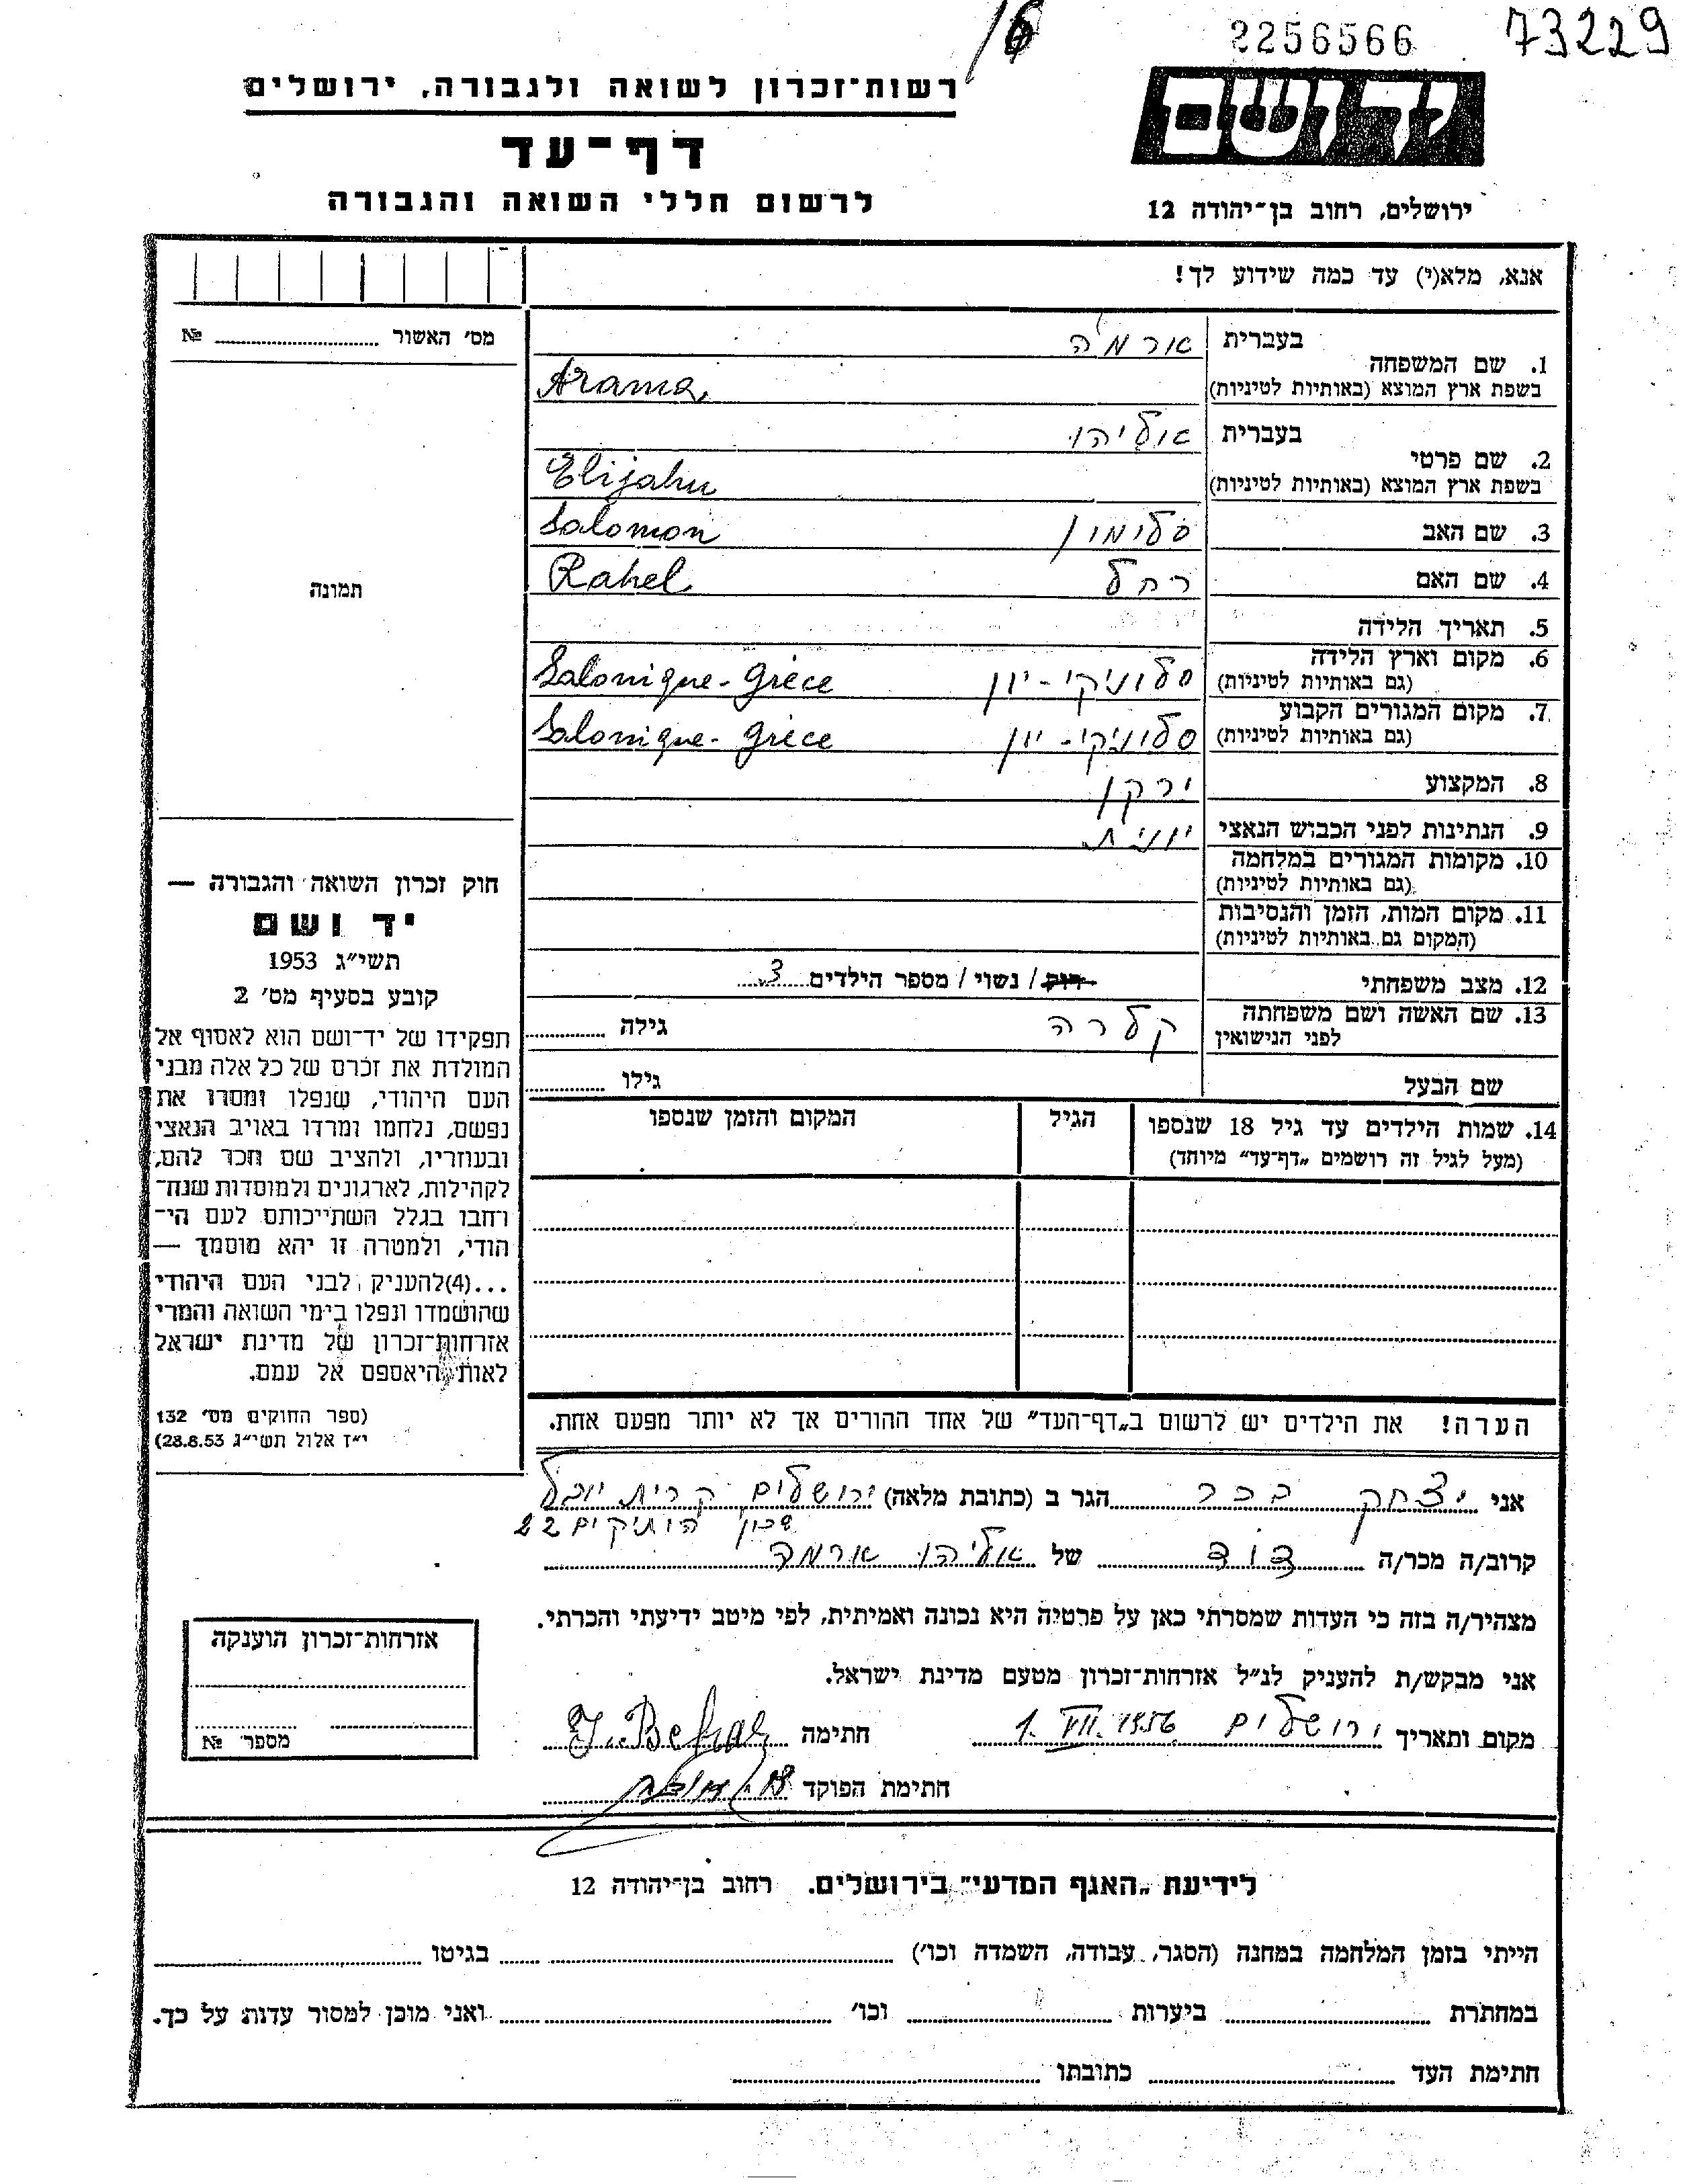 16
2256566
73229
רשות־זכרון לשואה ולגבורה, ירושלים
יד ושם
דף־עד
לרשום חללי השואה והגבורה
ירושלים, רחוב בן־יהודה 12
אנא, מלא(י) עד כמה שידוע לך!
מס׳ האשור № 
1. שם המשפחה
בעברית ארמה
בשפת ארץ המוצא (באותיות לטיניות) Arama
2. שם פרטי
בעברית אליהו
בשפת ארץ המוצא (באותיות לטיניות) Elijahu
3. שם האב סלימון Salomon
4. שם האם רחל Rahel
תמונה
5. תאריך הלידה
6. מקום וארץ הלידה סלוניקי - יון Salonique - Grèce
(גם באותיות לטיניות)
7. מקום המגורים הקבוע סלוניקי - יון Salonique - Grèce
(גם באותיות לטיניות)
8. המקצוע ירקן
9. הנתינות לפני הכבוש הנאצי יונית
10. מקומות המגורים במלחמה
(גם באותיות לטיניות)
11. מקום המות, הזמן והנסיבות
(המקום גם באותיות לטיניות)
12. מצב משפחתי רווק / נשוי / מספר הילדים 3
13. שם האשה ושם משפחתה קלרה גילה
לפני הנישואין
שם הבעל גילו
14. שמות הילדים עד גיל 18 שנספו הגיל המקום והזמן שנספו
(מעל לגיל זה רושמים „דף־עד” מיוחד)
חוק זכרון השואה והגבורה —
יד ושם
תשי״ג 1953
קובע בסעיף מס׳ 2
תפקידו של יד־ושם הוא לאסוף אל
המולדת את זכרם של כל אלה מבני
העם היהודי, שנפלו ומסרו את
נפשם, נלחמו ומרדו באויב הנאצי
ובעוזריו, ולהציב שם וזכר להם,
לקהילות, לארגונים ולמוסדות שנח־
רחבו בגלל השתייכותם לעם הי־
הודי, ולמטרה זו יהא מוסמך —
...(4)להעניק לבני העם היהודי
שהושמדו ונפלו בימי השואה והמרי
אזרחות־זכרון של מדינת ישראל
לאות היאספם אל עמם.
(ספר החוקים מס׳ 132
י״ז אלול תשי״ג 28.8.53)
הערה! את הילדים יש לרשום ב„דף־העד” של אחד ההורים אך לא יותר מפעם אחת.
אני יצחק בכר הגר ב (כתובת מלאה) ירושלים קרית יובל
שכון הותיקים 22
קרוב/ה מכר/ה דוד של אליהו ארמה
מצהיר/ה בזה כי העדות שמסרתי כאן על פרטיה היא נכונה ואמיתית, לפי מיטב ידיעתי והכרתי.
אני מבקש/ת להעניק לנ״ל אזרחות־זכרון מטעם מדינת ישראל.
מקום ותאריך ירושלים 1. VII. 1956 חתימה J. Behar
חתימת הפוקד
אזרחות־זכרון הוענקה
מספר №
לידיעת „האגף המדעי” בירושלים. רחוב בן־יהודה 12
הייתי בזמן המלחמה במחנה (הסגר, עבודה, השמדה וכו׳) בגיטו
במחתרת ביערות וכו׳ ואני מוכן למסור עדות על כך.
חתימת העד כתובתו